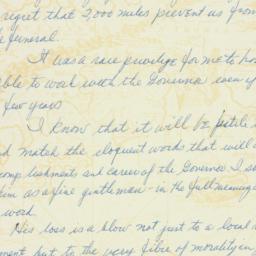 regret that 2,000 miles prevent us from
funeral.
It was a rare privilege for me to ha
ble to work with the Governor even
few years
I know that it will be futile
match the eloquent words that will
accomplishments and career of the Governor. I
him as a fine gentleman - in the full meaning
word.
His loss is a blow not just to a local
ment but to the very fibre of morality in